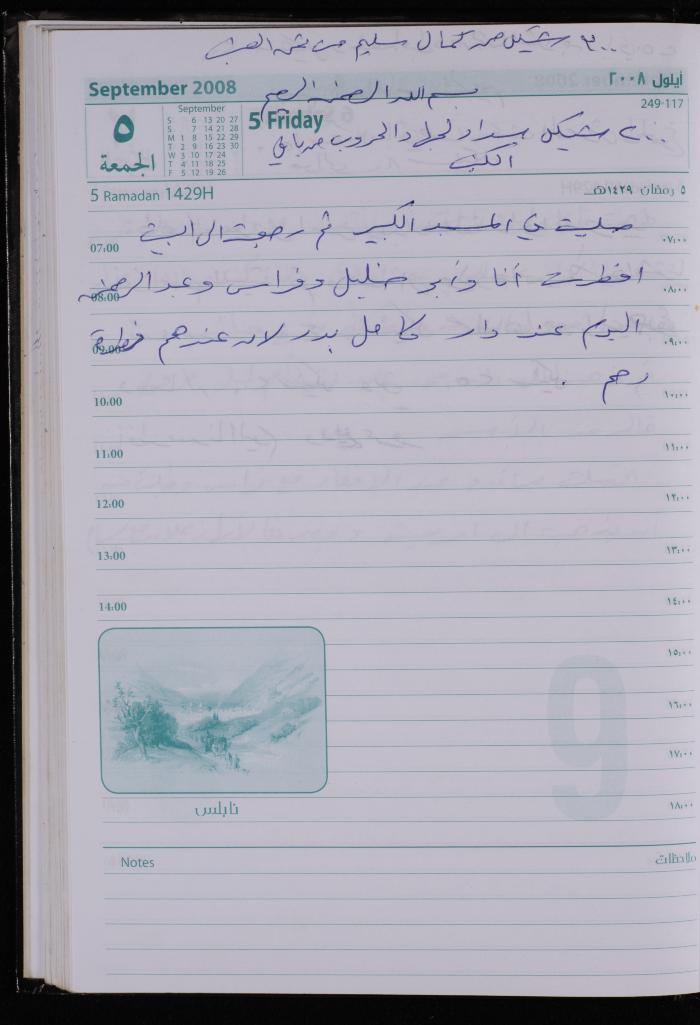 ٣٠٠ شيكل من كمال سليم من ثمن العنب
September 2008
أيلول ٢٠٠٨
بسم الله الرحمن الرحيم
249-117
٥
الجمعة
September
S 6 13 20 27
S 7 14 21 28
M 1 8 15 22 29
T 2 9 16 23 30
W 3 10 17 24
T 4 11 18 25
F 5 12 19 26
5 Friday
٢٠٠ شيكل سداد والخروب من باقي
5 Ramadan 1429H
٥ رمضان ١٤٢٩هـ
صليت في المسجد الكبير ثم رجعت الى البيت
07:00 ٠٧:٠٠
افطرت أنا وأبو خليل وفراس وعبد الرحمن
08:00 ٠٨:٠٠
اليوم عند دار كامل بدر لانه عندهم فطرة
09:00 ٠٩:٠٠
رحم .
10:00 ١٠:٠٠
11:00 ١١:٠٠
12:00 ١٢:٠٠
13:00 ١٣:٠٠
14:00 ١٤:٠٠
١٥:٠٠
١٦:٠٠
١٧:٠٠
١٨:٠٠
9
نابلس
Notes
ملاحظات